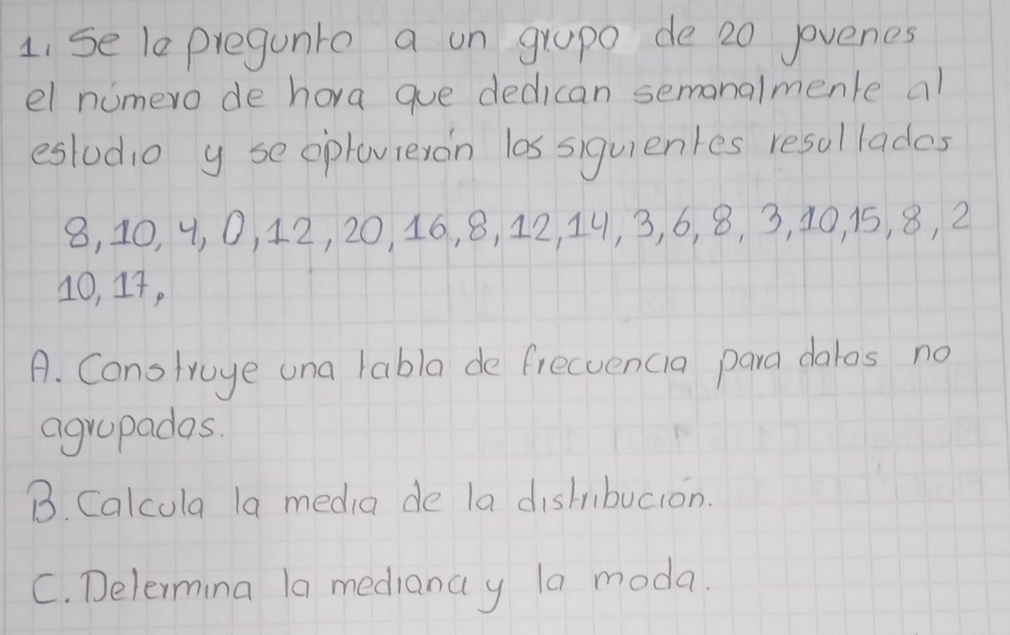 1. Se le pregunto a un grupo de 20 jovenes
el número de hora que dedican semanalmente al
estudio y se optuvierón los siguientes resultados
8, 10, 4, 0, 12, 20, 16, 8, 12, 14, 3, 6, 8, 3, 10, 15, 8, 2
10, 17,
A. Construye una tabla de frecuencia para datos no
agrupados.
B. Calcula la media de la distribución.
C. Determina la mediana y la moda.